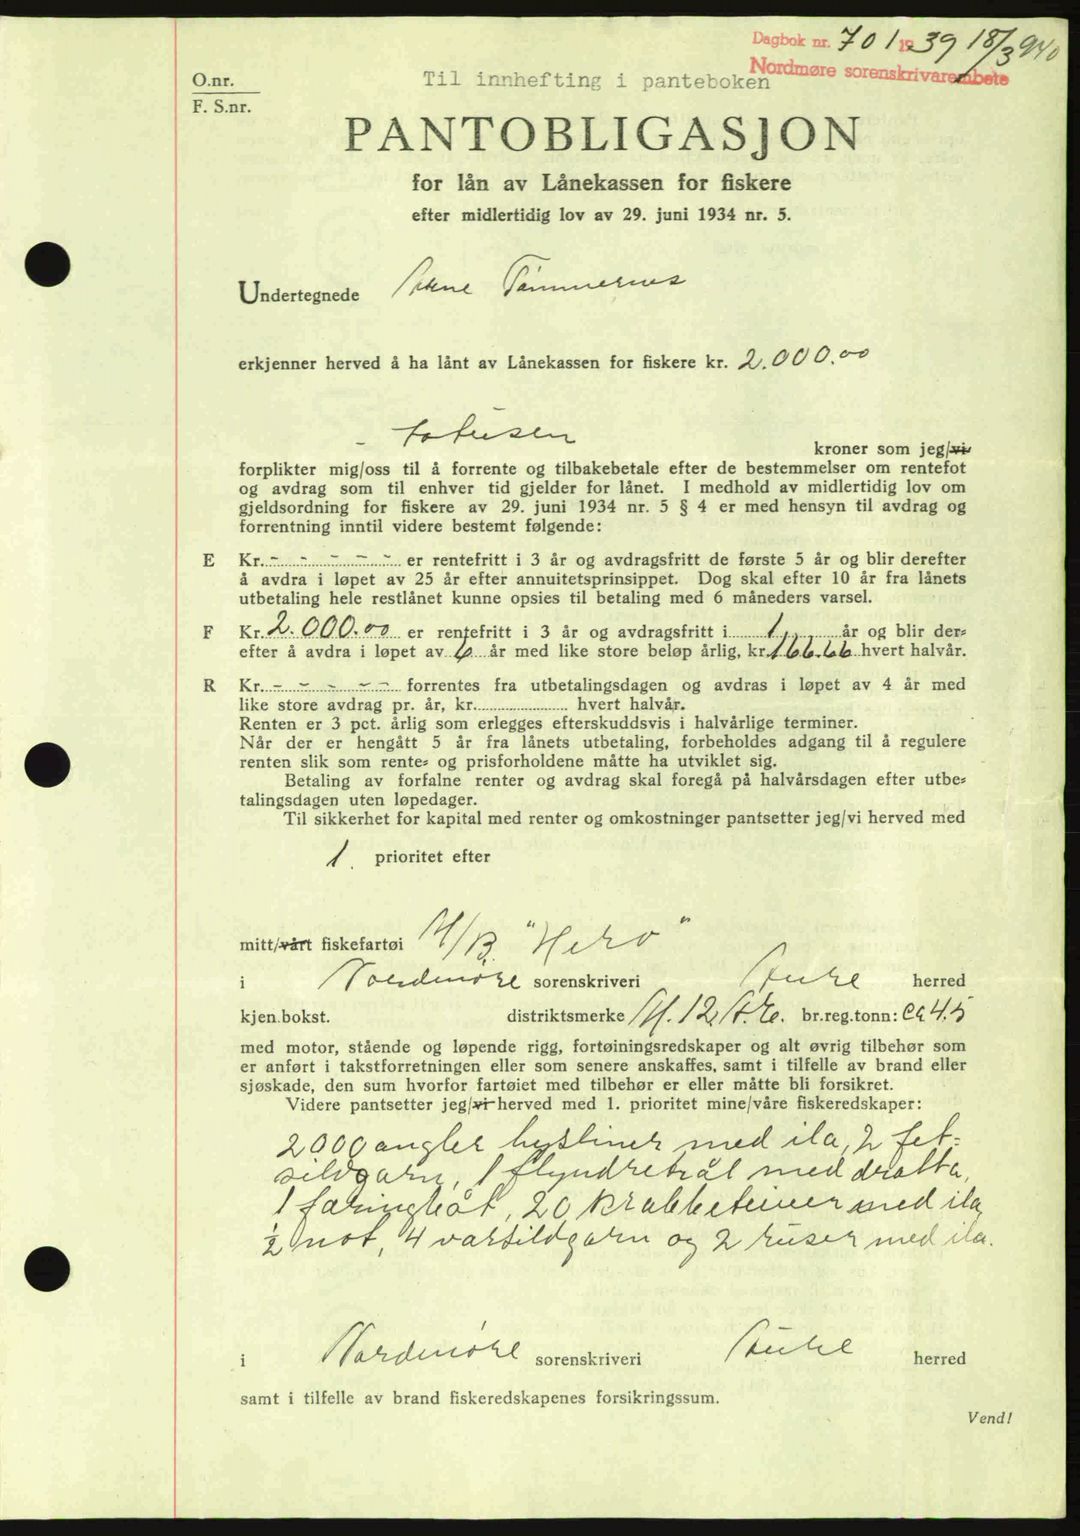 Dagbok nr. 701 1939 18/3 940
Nordmøre sorenskrivarembete
O.nr.
F. S.nr.
Til innhefting i panteboken
PANTOBLIGASJON
for lån av Lånekassen for fiskere
efter midlertidig lov av 29. juni 1934 nr. 5.
Undertegnede Arne Tømmernes
erkjenner herved å ha lånt av Lånekassen for fiskere kr. 2.000.00
- totusen
kroner som jeg/vi
forplikter mig/oss til å forrente og tilbakebetale efter de bestemmelser om rentefot
og avdrag som til enhver tid gjelder for lånet. I medhold av midlertidig lov om
gjeldsordning for fiskere av 29. juni 1934 nr. 5 § 4 er med hensyn til avdrag og
forrentning inntil videre bestemt følgende:
E Kr. - - - - - er rentefritt i 3 år og avdragsfritt de første 5 år og blir derefter
å avdra i løpet av 25 år efter annuitetsprinsippet. Dog skal efter 10 år fra lånets
utbetaling hele restlånet kunne opsies til betaling med 6 måneders varsel.
F Kr. 2.000.00 er rentefritt i 3 år og avdragsfritt i 1 år og blir der-
efter å avdra i løpet av 6 år med like store beløp årlig, kr. 166.66 hvert halvår.
R Kr. - - - - - forrentes fra utbetalingsdagen og avdras i løpet av 4 år med
like store avdrag pr. år, kr. hvert halvår.
Renten er 3 pct. årlig som erlegges efterskuddsvis i halvårlige terminer.
Når der er hengått 5 år fra lånets utbetaling, forbeholdes adgang til å regulere
renten slik som rente- og prisforholdene måtte ha utviklet sig.
Betaling av forfalne renter og avdrag skal foregå på halvårsdagen efter utbe-
talingsdagen uten løpedager.
Til sikkerhet for kapital med renter og omkostninger pantsetter jeg/vi herved med
1. prioritet efter
mitt/vårt fiskefartøi M/B. "Hero"
i Nordmøre sorenskriveri Aure herred
kjen.bokst. distriktsmerke M.12.A.E. br.reg.tonn: ca 4.5
med motor, stående og løpende rigg, fortøiningsredskaper og alt øvrig tilbehør som
er anført i takstforretningen eller som senere anskaffes, samt i tilfelle av brand eller
sjøskade, den sum hvorfor fartøiet med tilbehør er eller måtte bli forsikret.
Videre pantsetter jeg/vi herved med 1. prioritet mine/våre fiskeredskaper:
2000 angler hysliner med ila, 2 fet-
sildgarn, 1 flyndretrål med dratta,
1 færingbåt, 20 krabbeteiner med ila
½ not, 4 vårsildgarn og 2 ruser med ila.
i Nordmøre sorenskriveri Aure herred
samt i tilfelle av brand fiskeredskapenes forsikringssum.
Vend!